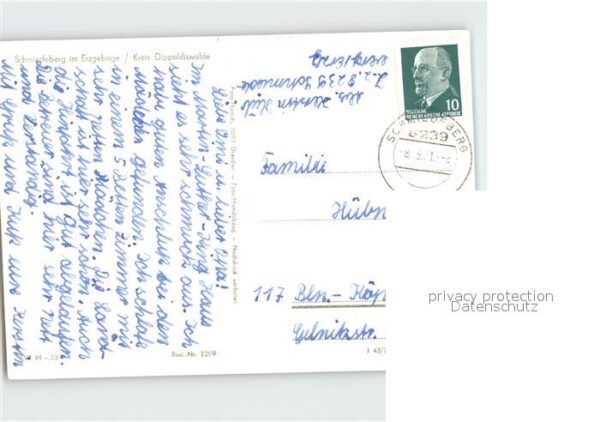 Schmiedeberg im Erzgebirge / Kreis Dippoldiswalde
Liebe Omi u. lieber Opa!
Im Martin-Luther-King Haus
sieht es sehr schmuck aus. Ich
habe guten Anschluß bei den
Mädchen gefunden. Ich schlafe
in einem 5 Betten Zimmer mit
sehr netten Mädchen. Die Land-
schaft ist hier sehr schön. Auch
die Hinfahrt ist gut abgelaufen.
Die Betreuer sind hier sehr nett
und
Gruß und Kuß eure Kerstin
M -,25
Best.-Nr. 1269
Dresden
Nachdruck verboten
Abs. Kerstin
Z.Z. 8239 Schmiede
berg/Erzg
DEUTSCHE
DEMOKRATISCHE REPUBLIK
10
SCHMIEDEBERG
8239
Familie
Hübn
117 Bln.-Köp
Gelnitzstr.
privacy protection
Datenschutz